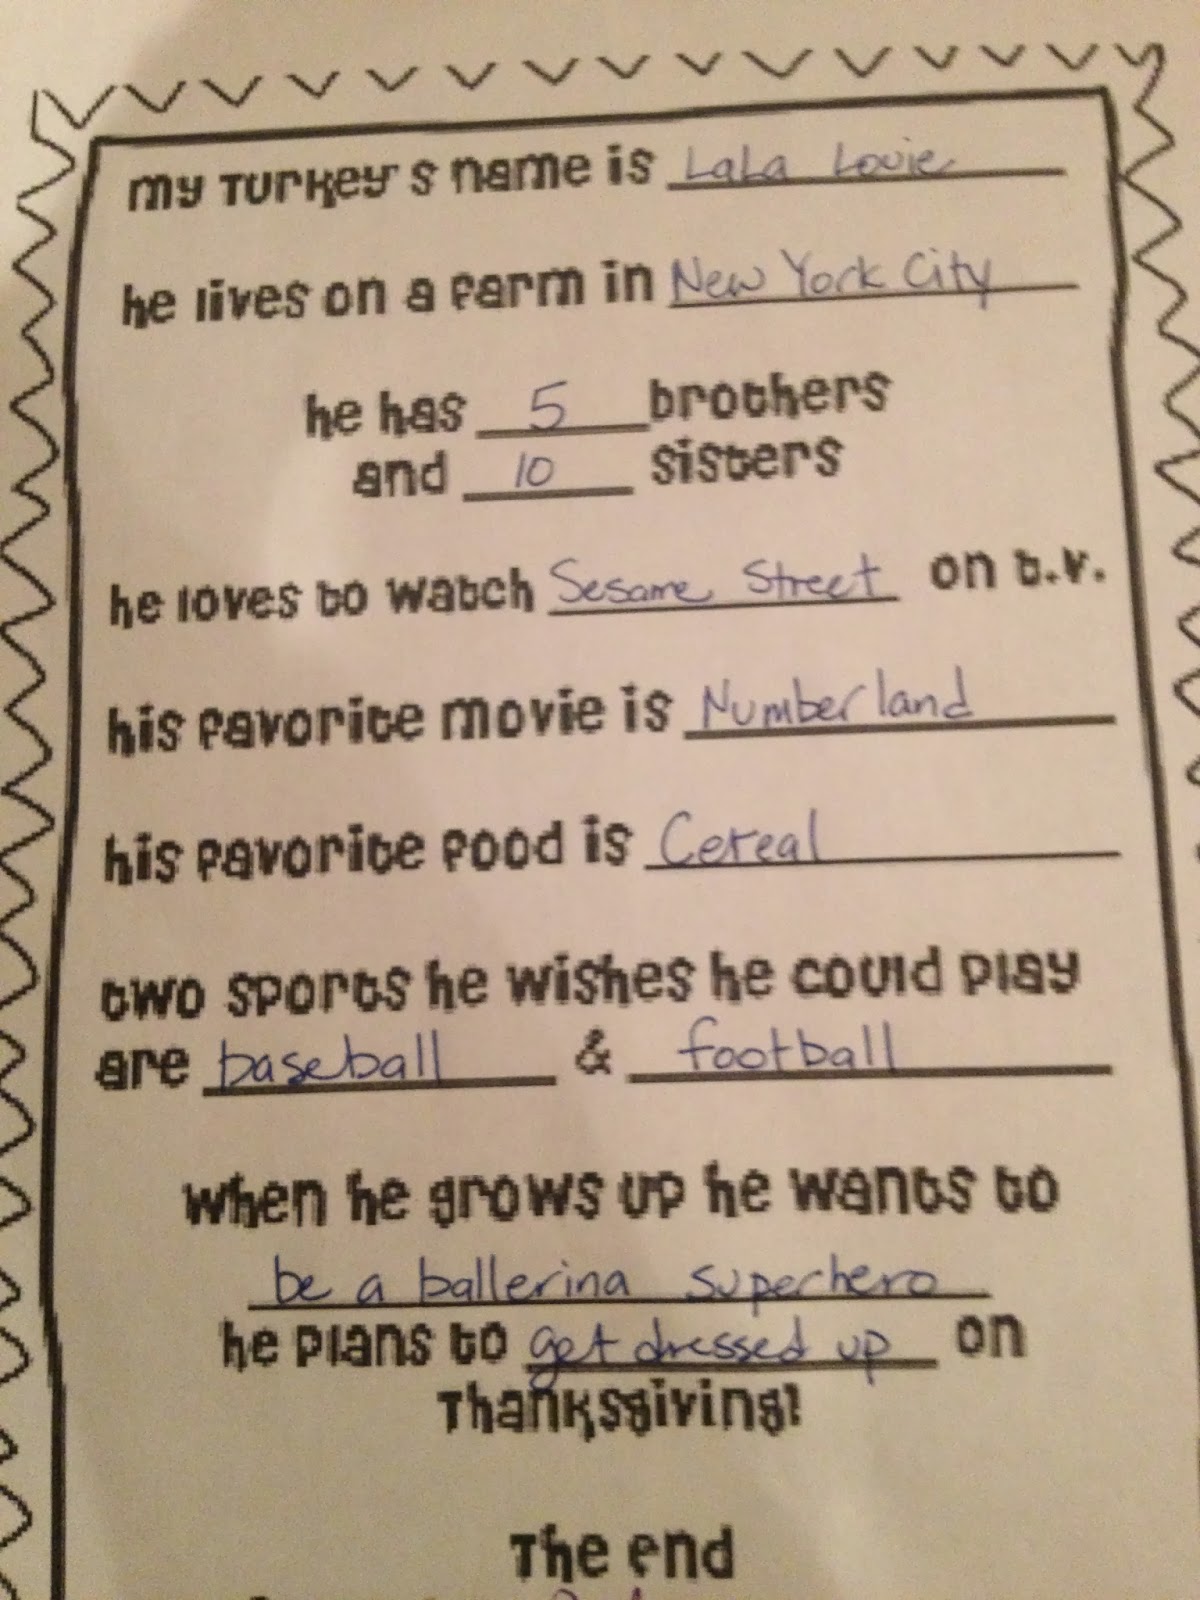 my Turkey's name is LaLa Louie
he lives on a farm in New York City
he has 5 brothers
and 10 sisters
he loves to watch Sesame Street on t.v.
his favorite movie is Numberland
his favorite food is Cereal
two sports he wishes he could play
are baseball & football
when he grows up he wants to
be a ballerina superhero
he plans to get dressed up on
Thanksgiving!
The end